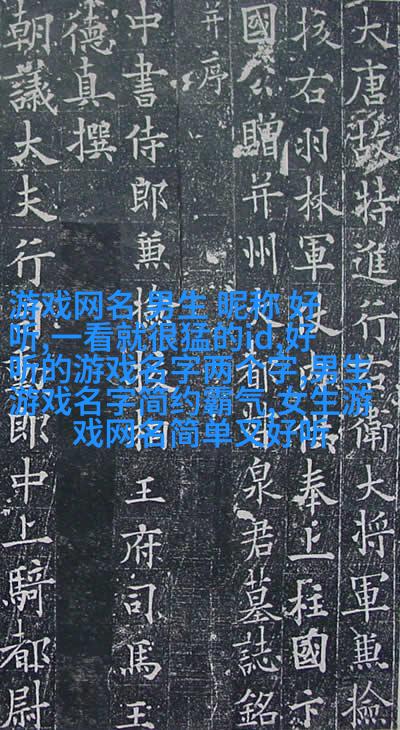 大唐故特進行右衛大将軍兼撿
挍右羽林軍仗内供奉上柱國卞
國公贈并州大都督泉君墓誌銘
并序
中書侍郎兼撿挍相王府司馬王
德真撰
朝議大夫行司勳郎中上騎都尉
游戏网名 男生 昵称 好
听,一看就很猛的id,好
听的游戏名字两个字,男生
游戏名字简约霸气,女生游
戏网名简单又好听